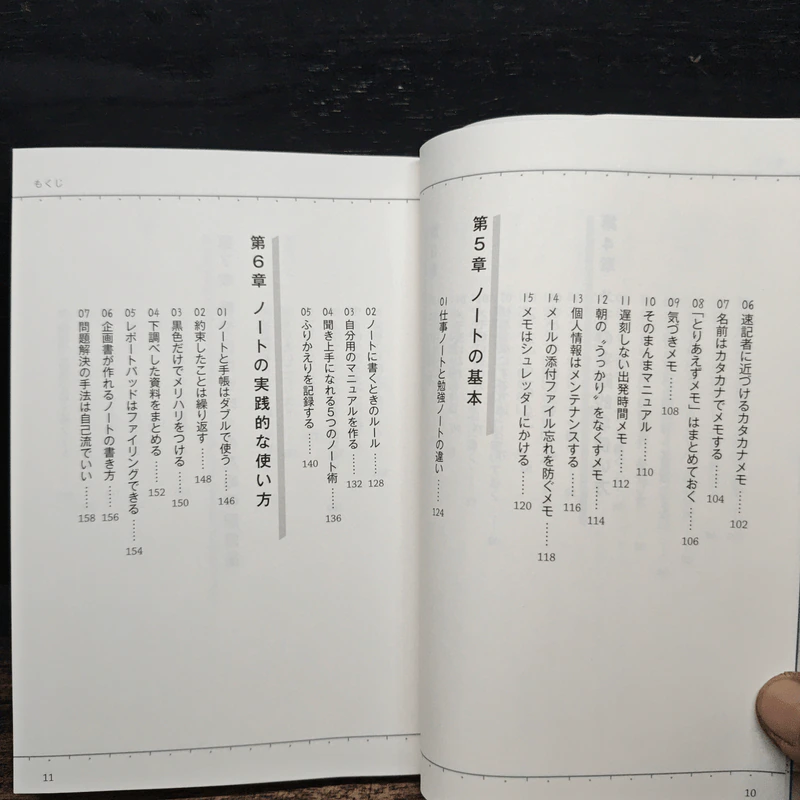 06 速記者に近づけるカタカナメモ……102
07 名前はカタカナでメモする……104
08 「とりあえずメモ」はまとめておく……106
09 気づきメモ……108
10 そのまんまマニュアル……110
11 遅刻しない出発時間メモ……112
12 朝の〝うっかり〟をなくすメモ……114
13 個人情報はメンテナンスする……116
14 メールの添付ファイル忘れを防ぐメモ……118
15 メモはシュレッダーにかける……120
第5章 ノートの基本
01 仕事ノートと勉強ノートの違い……124
10
もくじ
02 ノートに書くときのルール……128
03 自分用のマニュアルを作る……132
04 聞き上手になれる5つのノート術……136
05 ふりかえりを記録する……140
第6章 ノートの実践的な使い方
01 ノートと手帳はダブルで使う……146
02 約束したことは繰り返す……148
03 黒色だけでメリハリをつける……150
04 下調べした資料をまとめる……152
05 レポートパッドはファイリングできる……154
06 企画書が作れるノートの書き方……156
07 問題解決の手法は自己流でいい……158
11